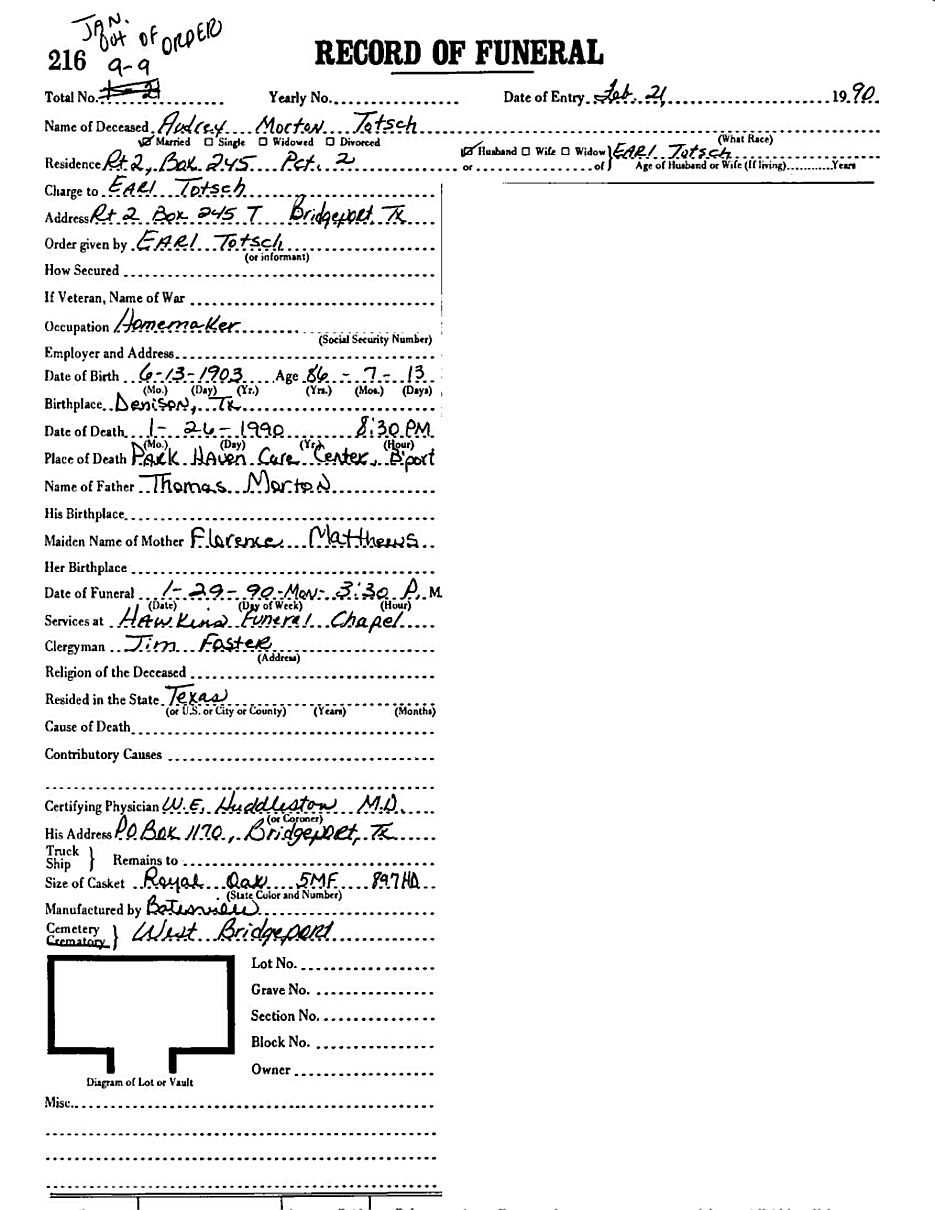 JAN.
Out OF ORDER
216 9-9
RECORD OF FUNERAL
Total No. Yearly No. Date of Entry Feb. 21, 1990.
Name of Deceased Audrey Morton Totsch
(What Race)
☑ Married ☐ Single ☐ Widowed ☐ Divorced
☑ Husband ☐ Wife ☐ Widow } EARl Totsch
Residence Rt 2, Box 245 Pct. 2 or of Age of Husband or Wife (If living) Years
Charge to EARl Totsch
Address Rt 2 Box 245 T Bridgeport, Tx
Order given by EARl Totsch
(or informant)
How Secured
If Veteran, Name of War
Occupation Homemaker
(Social Security Number)
Employer and Address
Date of Birth 6-13-1903 Age 86 - 7 - 13
(Mo.) (Day) (Yr.) (Yrs.) (Mos.) (Days)
Birthplace Denison, Tx
Date of Death 1- 26-1990 8:30 PM
(Mo.) (Day) (Yr.) (Hour)
Place of Death PARK HAven Care Center, B'port
Name of Father Thomas Morton
His Birthplace
Maiden Name of Mother Florence Matthews
Her Birthplace
Date of Funeral 1- 29- 90-Mon- 3:30 P. M.
(Date) (Day of Week) (Hour)
Services at HAwkins Funeral Chapel
Clergyman Jim Foster
(Address)
Religion of the Deceased
Resided in the State Texas
(or U.S. or City or County) (Years) (Months)
Cause of Death
Contributory Causes
Certifying Physician W.E. Huddleston M.D.
(or Coroner)
His Address P.O. Box 1170, Bridgeport, Tx
Truck
Ship } Remains to
Size of Casket Royal Oak 5MF 897HD
(State Color and Number)
Manufactured by Batesville
Cemetery
Crematory } West Bridgeport
Lot No.
Grave No.
Section No.
Block No.
Owner
Diagram of Lot or Vault
Misc.